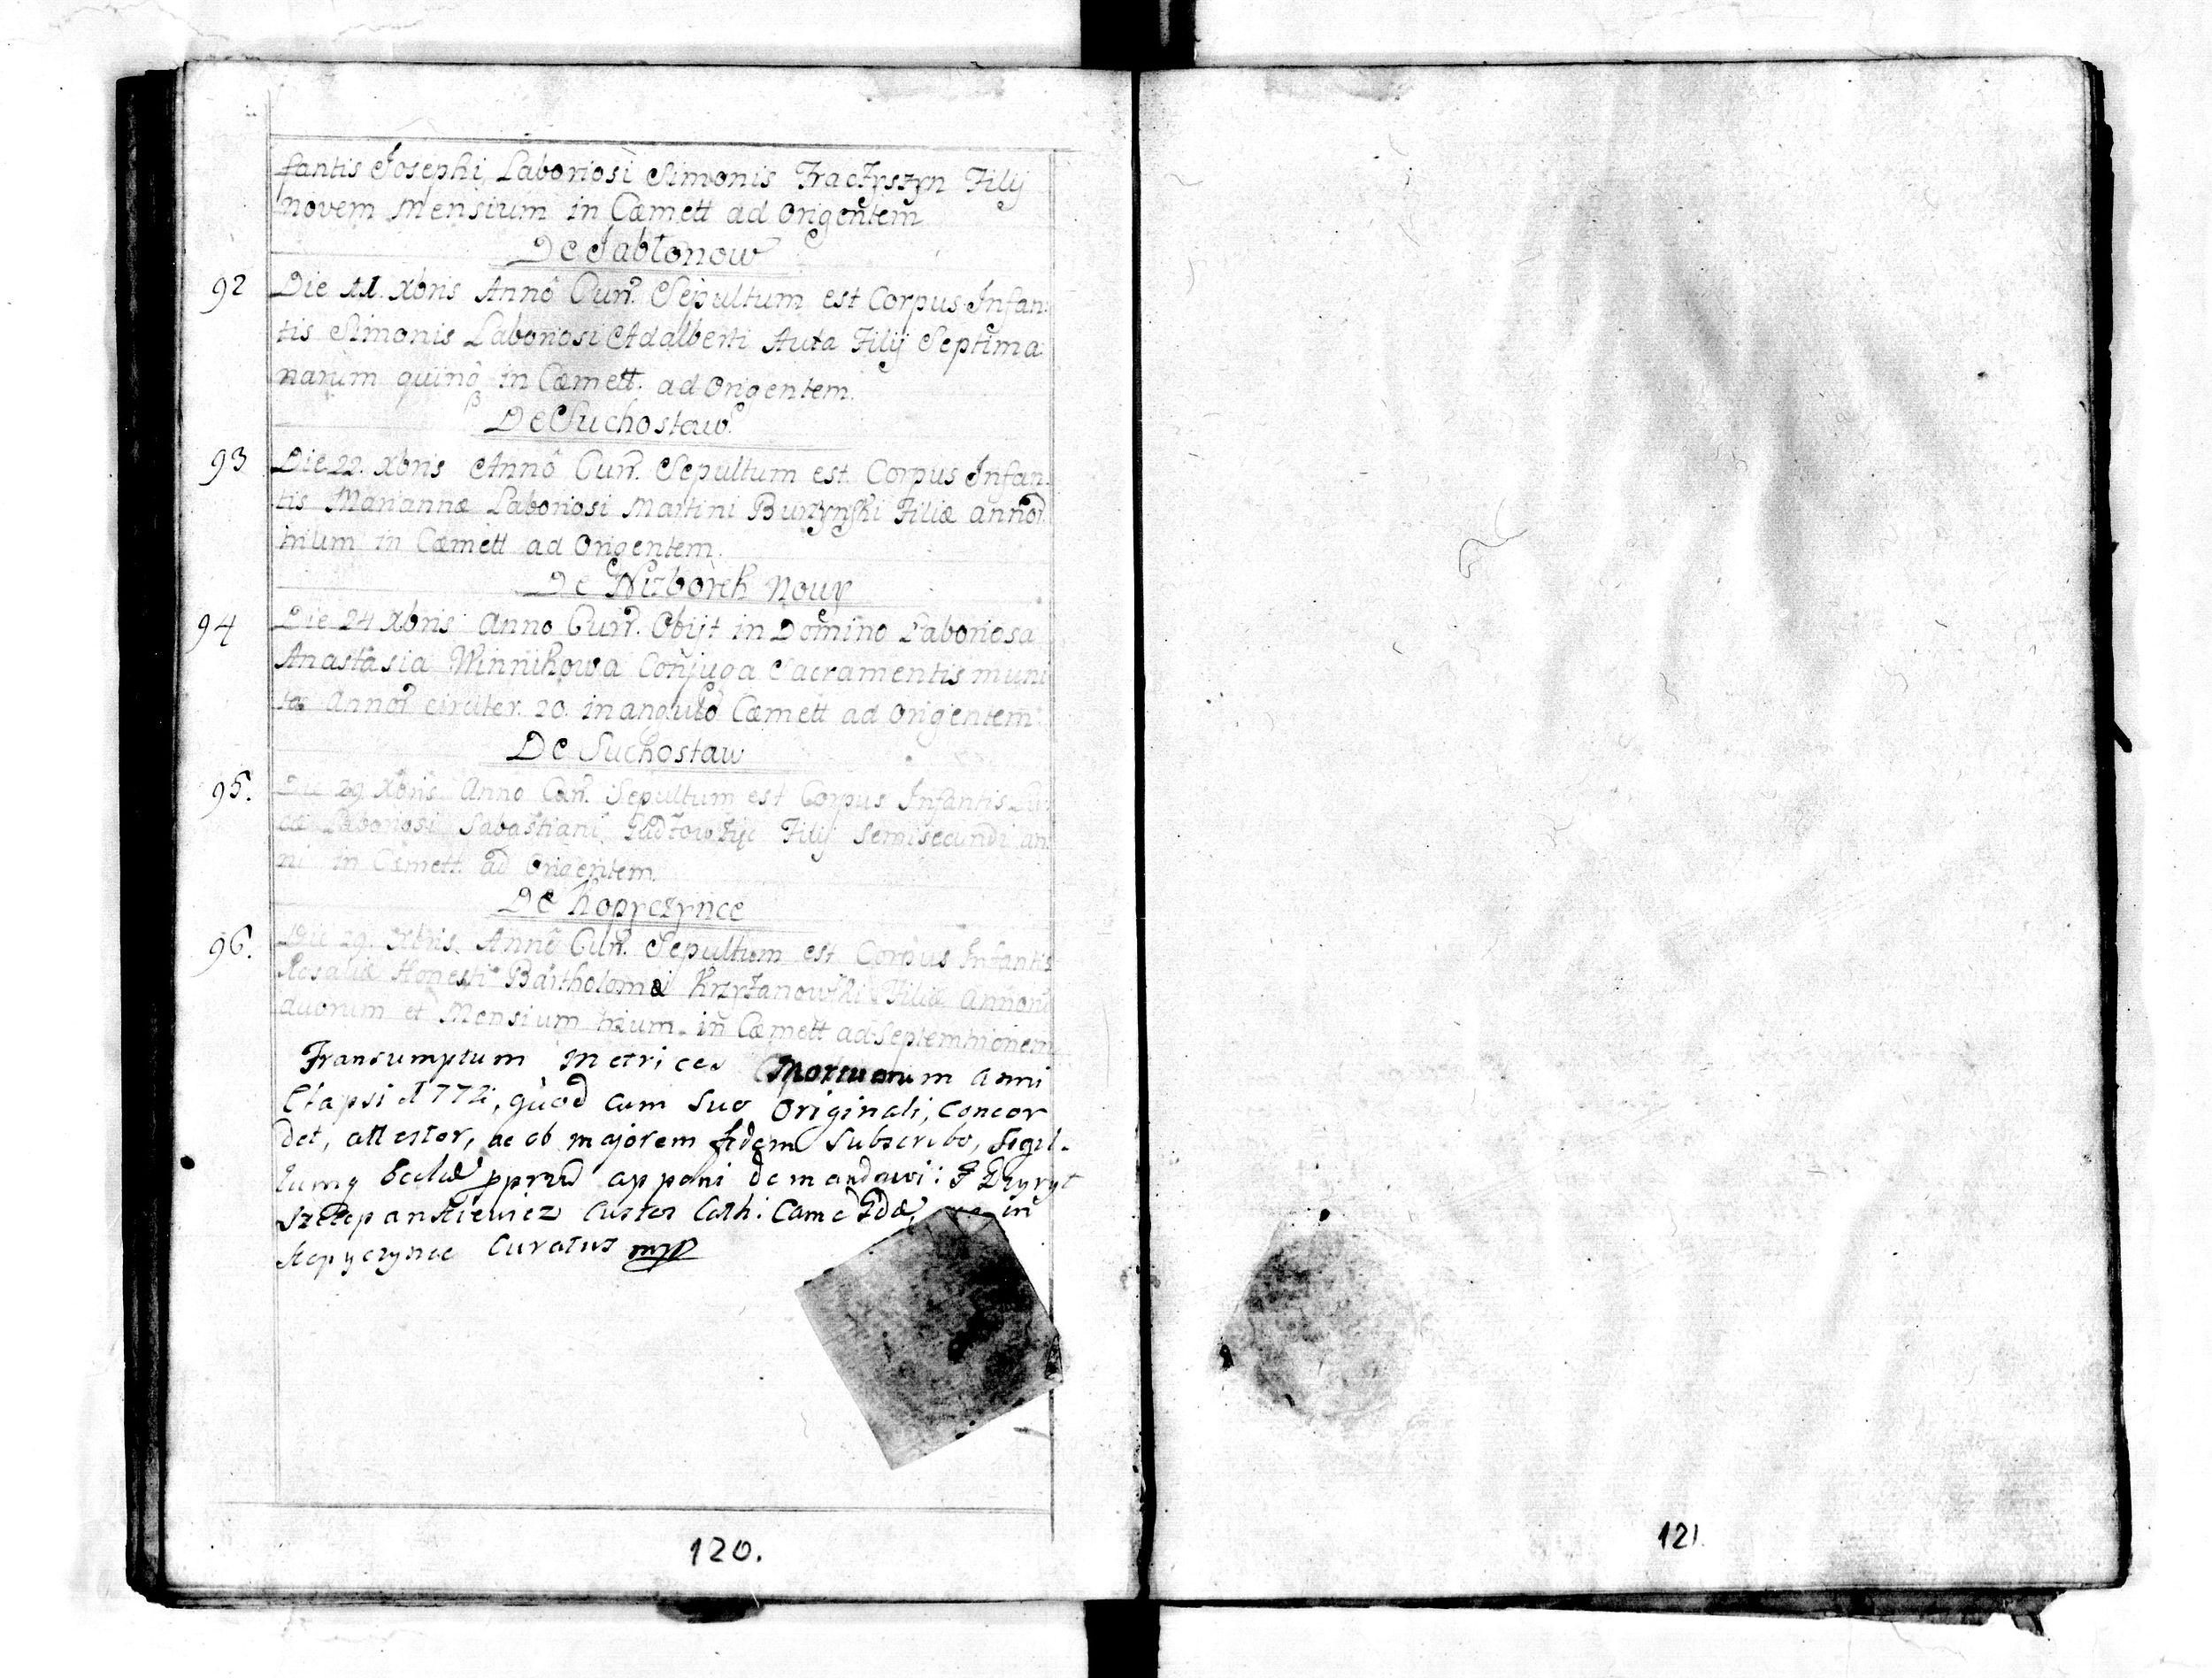 fantis Josephi Laboriosi Simonis Traczyszyn Filij
novem Mensium in Cæmett ad Origentem
De Jabłonow
92 Die 11. Xbris Annô Curr. Sepultum est Corpus Infan:
tis Simonis Laboriosi Adalberti Auta Filij Septima
narum quinq in Cæmett. ad Origentem.
De Suchostaw
93 Die 22. Xbris Annô Curr. Sepultum est Corpus Infan:
tis Mariannæ Laboriosi Martini Burzynski Filiæ annor
trium in Cæmett ad Origentem.
De Nizborek Nowy
94 Die 24 Xbris Anno Curr. Obijt in Domino Laboriosa
Anastasia Winnikowa Conjuga Sacramentis muni
ta Annor circiter. 20. in angulo Cæmett ad Origentem
De Suchostaw
95. Die 29 Xbris Anno Curr. Sepultum est Corpus Infantis
Laboriosi Sabastiani Filij Semisecundi an
ni in Cæmett. ad Origentem.
De Kopyczynce
96. Die 29. Xbris. Annô Curr. Sepultum est Corpus Infantis
Rosaliæ Honesti Bartholomæi Krzyżanowski Filiæ Annorũ
duorum et Mensium trium. in Cæmett ad Septemtrionem
Transumptum Metrices Mortuorum Anni
Elapsi 1772, quod cum suo Originali, Concor
det, attestor, ac ob majorem fidem Subscribo, Sigil-
lumq Ecclæ apponi demandavi:
Szczepankiewicz Custos Cath: Came in
Kopyczynce Curatus mp
120.
121.